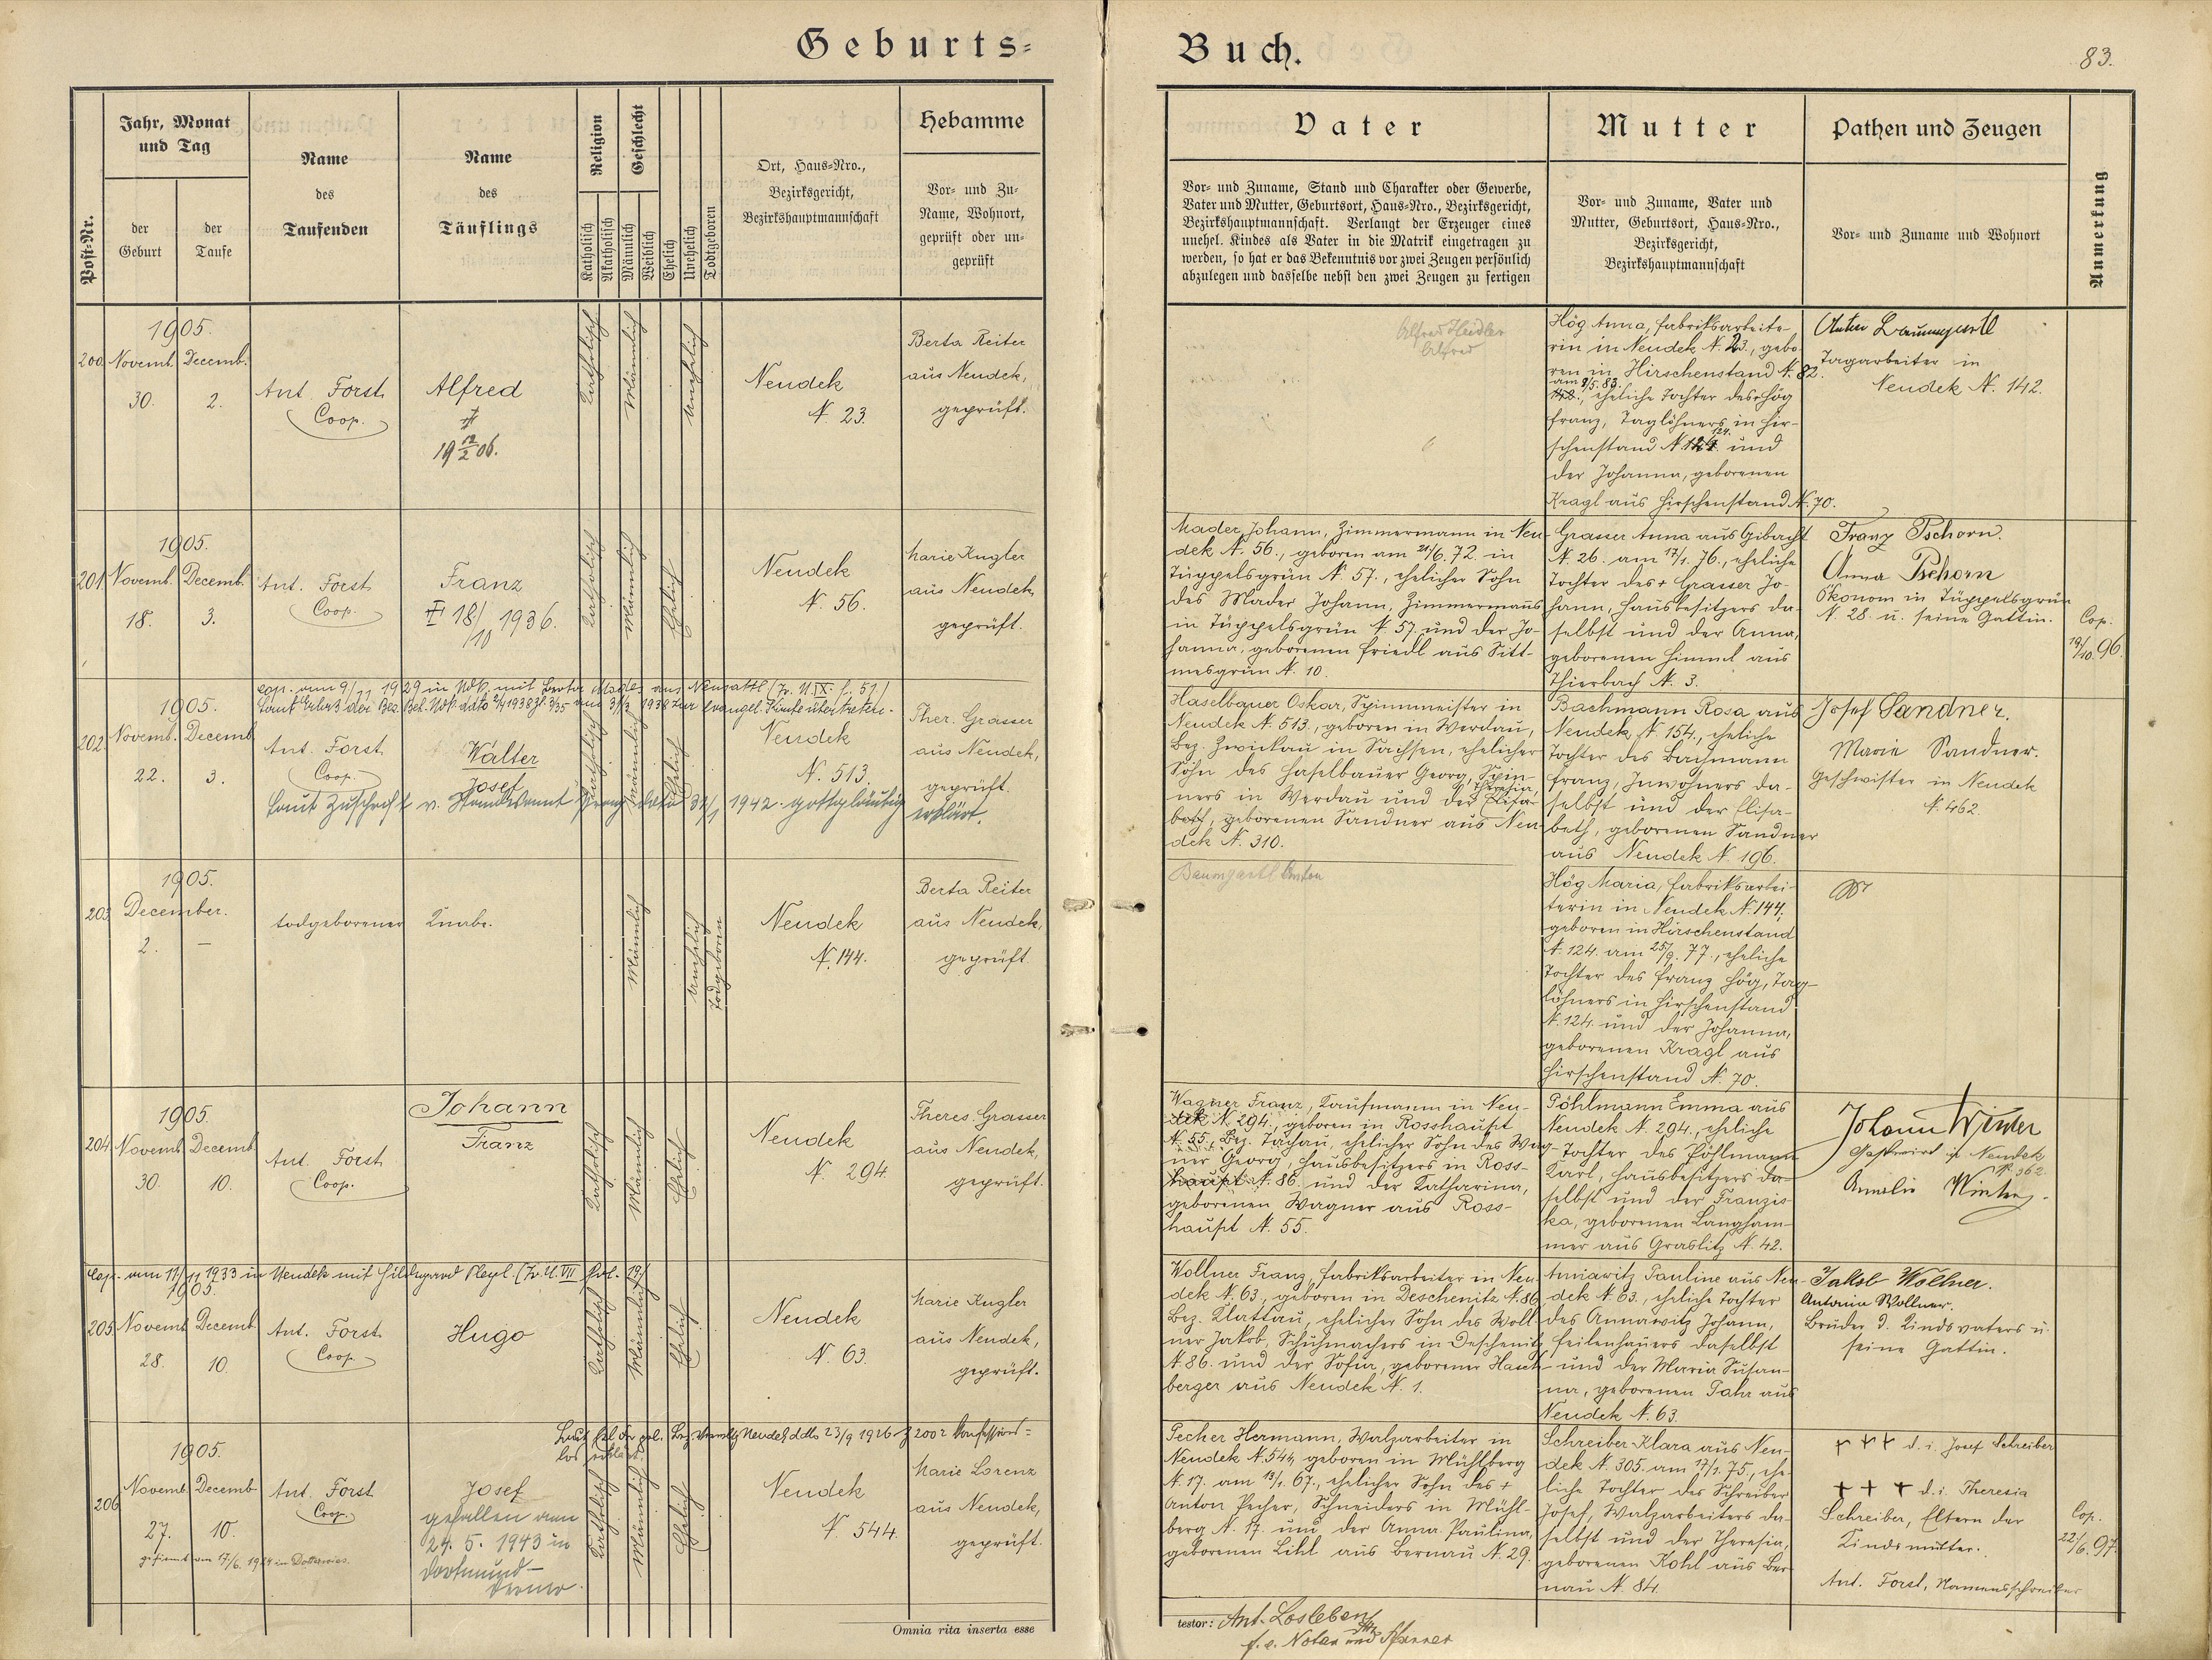 Geburts-
Buch.
83.
Post-Nr.
Jahr, Monat
und Tag
der
Geburt
der
Taufe
Name
des
Taufenden
Name
des
Täuflings
Religion
Katholisch
Akatholisch
Geschlecht
Männlich
Weiblich
Ehelich
Unehelich
Todtgeboren
Ort, Haus-Nro.,
Bezirksgericht,
Bezirkshauptmannschaft
Hebamme
Vor- und Zu-
Name, Wohnort,
geprüft oder un-
geprüft
Vater
Vor- und Zuname, Stand und Charakter oder Gewerbe,
Vater und Mutter, Geburtsort, Haus-Nro., Bezirksgericht,
Bezirkshauptmannschaft. Verlangt der Erzeuger eines
unehel. Kindes als Vater in die Matrik eingetragen zu
werden, so hat er das Bekenntnis vor zwei Zeugen persönlich
abzulegen und dasselbe nebst den zwei Zeugen zu fertigen
Mutter
Vor- und Zuname, Vater und
Mutter, Geburtsort, Haus-Nro.,
Bezirksgericht,
Bezirkshauptmannschaft
Pathen und Zeugen
Vor- und Zuname und Wohnort
Anmerkung
1905.
200. Novemb. Decemb.
30. 2.
Ant. Forst
Coop.
Alfred
†
19 12/2 06.
Katholisch
Männlich
Unehelich
Neudek
N. 23.
Berta Reiter
aus Neudek,
geprüft.
Alfred Heidler
Alfred
Hög Anna, Fabriksarbeite-
rin in Neudek N. 23., gebo-
ren in Hirschenstand N. 82.
am 8/5. 83.
eheliche Tochter des Hög
Franz, Taglöhners in Hir-
schenstand N. 124. und
der Johanna, geborenen
Kragl aus Hirschenstand N. 70.
Anton Baumgartl
Tagarbeiter in
Neudek N. 142.
1905.
201. Novemb. Decemb.
18. 3.
Ant. Forst
Coop.
Franz
18/10 1936.
Katholisch
Männlich
Ehelich
Neudek
N. 56.
Marie Kugler
aus Neudek,
geprüft.
Mader Johann, Zimmermann in Neu-
dek N. 56., geboren am 21/6. 72. in
Tüppelsgrün N. 57., ehelicher Sohn
des Mader Johann, Zimmermanns
in Tüppelsgrün N. 57. und der Jo-
hanna, geborenen Friedl aus Sitt-
mesgrün N. 10.
Grasser Anna aus Gibacht
N. 26. am 17/1. 76., eheliche
Tochter des † Grasser Jo-
hann, Hausbesitzers da-
selbst und der Anna,
geborenen Himml aus
Thierbach N. 3.
Franz Pschorn.
Anna Pschorn
Ökonom in Tüppelsgrün
N. 28. u. seine Gattin.
Cop.
19/10. 96.
cop. am 9/11 1929 in Ndk. mit Berta Mader aus Neusattl (Tr. U. IX. f. 51.)
1905.
202. Novemb. Decemb.
22. 3.
Ant. Forst
Coop.
Walter
Josef
Katholisch
Männlich
Ehelich
Neudek
N. 513.
Ther. Grasser
aus Neudek,
geprüft.
Laut Zuschrift v. Standesamt 1942 gottgläubig erklärt.
Haselbauer Oskar, Spinnmeister in
Neudek N. 513., geboren in Werdau,
Bez. Zwickau in Sachsen, ehelicher
Sohn des Haselbauer Georg, Spin-
Theresia,
ners in Werdau und der Elisa-
beth, geborenen Sandner aus Neu-
dek N. 310.
Bachmann Rosa aus
Neudek N. 154., eheliche
Tochter des Bachmann
Franz, Inwohners da-
selbst und der Elisa-
beth, geborenen Sandner
aus Neudek N. 196.
Josef Sandner.
Marie Sandner.
Geschwister in Neudek
N. 462.
1905.
203. December.
2. —
todgeborener Knabe.
Männlich
Unehelich
Todgeboren
Neudek
N. 144.
Berta Reiter
aus Neudek,
geprüft
Baumgartl Anton
Hög Maria, Fabriksarbei-
terin in Neudek N. 144.,
geboren in Hirschenstand
N. 124. am 25/9. 77., eheliche
Tochter des Franz Hög, Tag-
löhners in Hirschenstand
N. 124. und der Johanna,
geborenen Kragl aus
Hirschenstand N. 70.
1905.
204. Novemb. Decemb.
30. 10.
Ant. Forst
Coop.
Johann
Franz
Katholisch
Männlich
Ehelich
Neudek
N. 294.
Theres. Grasser
aus Neudek,
geprüft.
Wagner Franz, Kaufmann in Neu-
dek N. 294., geboren in Rosshaupt
N. 55., Bez. Tachau, ehelicher Sohn des Wag-
ner Georg, Hausbesitzers in Ross-
haupt N. 86. und der Katharina,
geborenen Wagner aus Ross-
haupt N. 55.
Pöhlmann Emma aus
Neudek N. 294., eheliche
Tochter des Pöhlmann
Karl, Hausbesitzers da-
selbst und der Franzis-
ka, geborenen Langham-
mer aus Graslitz N. 42.
Johann Winter
Gastwirt in Neudek
N. 362.
Amalie Winter.
Cop. am 11/11 1933 in Neudek mit Hildegard Pleyl. (Tr. U. VII fol. 19)
1905.
205. Novemb. Decemb.
28. 10.
Ant. Forst
Coop.
Hugo
Katholisch
Männlich
Ehelich
Neudek
N. 63.
Marie Kugler
aus Neudek,
geprüft.
Wollner Franz, Fabriksarbeiter in Neu-
dek N. 63., geboren in Deschenitz N. 86
Bez. Klattau, ehelicher Sohn des Woll-
ner Jakob, Schuhmachers in Deschenitz
N. 86. und der Sofia, geborener Hasch-
berger aus Neudek N. 1.
Annawitz Pauline aus Neu-
dek N. 63., eheliche Tochter
des Annawitz Johann,
Feilenhauers daselbst
und der Maria Susan-
na, geborenen Fahr aus
Neudek N. 63.
Jakob Wollner.
Antonia Wollner.
Bruder d. Kindsvaters u.
seine Gattin.
1905.
206. Novemb. Decemb.
27. 10.
gefirmt am 17/6. 1914 in
Ant. Forst
Coop.
Josef
gefallen am
24. 5. 1943 in
Dortmund-
Katholisch
Männlich
Ehelich
Neudek
N. 544.
Marie Lorenz
aus Neudek,
geprüft.
Pecher Hermann, Walzarbeiter in
Neudek N. 544, geboren in Mühlberg
N. 17. am 13/1. 67., ehelicher Sohn des †
Anton Pecher, Schneiders in Mühl-
berg N. 17. und der Anna Paulina,
geborenen Lihl aus Bernau N. 29.
Schreiber Klara aus Neu-
dek N. 305. am 17/1. 75., ehe-
liche Tochter des Schreiber
Josef, Walzarbeiters da-
selbst und der Theresia,
geborenen Kohl aus Ber-
nau N. 84.
+++ d. i. Josef Schreiber
+++ d. i. Theresia
Schreiber, Eltern der
Kindsmutter.
Ant. Forst, Namensschreiber
Cop.
22/6. 97.
Omnia rita inserta esse
testor: Ant. Losleben
f. e. Notar und Pfarrer